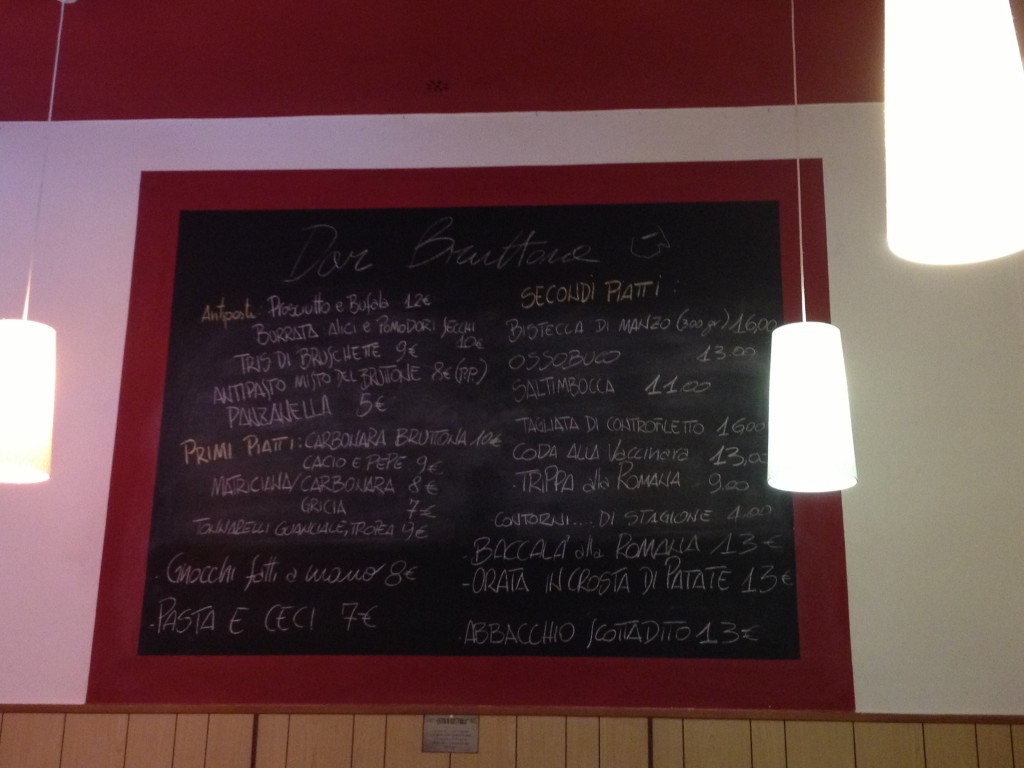 Dar Bruttone
Antipasti: Prosciutto e Bufala 12€
BURRATA ALICI E POMODORI SECCHI 10€
TRIS DI BRUSCHETTE 9€
ANTIPASTO MISTO DEL BRUTTONE 8€ (P.P.)
PANZANELLA 5€
PRIMI PIATTI: CARBONARA BRUTTONA 10€
CACIO E PEPE 9€
MATRICIANA/CARBONARA 8€
GRICIA 7€
TONNARELLI GUANCIALE, TROPEA 9€
Gnocchi fatti a mano 8€
PASTA E CECI 7€
SECONDI PIATTI:
BISTECCA DI MANZO (300 gr) 16,00
OSSOBUCO 13.00
SALTIMBOCCA 11.00
TAGLIATA DI CONTROFILETTO 16.00
CODA ALLA Vaccinara 13,00
-TRIPPA alla ROMANA - 9.00
CONTORNI.... DI STAGIONE 4.00
-BACCALA' alla ROMANA 13€
-ORATA IN CROSTA DI PATATE 13€
ABBACCHIO SCOTTADITO 13€